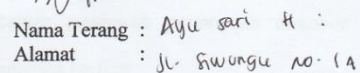 Nama Terang : Ayu sari H :
Alamat : Jl. Siwungu no. 1A